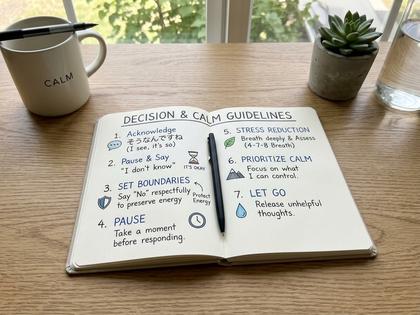 CALM
DECISION & CALM GUIDELINES
1. Acknowledge
そうなんですね
(I see, it's so)
2. Pause & Say
"I don't know"
IT'S OKAY
3. SET BOUNDARIES
Say "No" respectfully
to preserve energy
Protect
Energy
4. PAUSE
Take a moment
before responding.
5. STRESS REDUCTION
Breath deeply & Assess
(4-7-8 Breath)
6. PRIORITIZE CALM
Focus on what
I can control.
7. LET GO
Release unhelpful
thoughts.